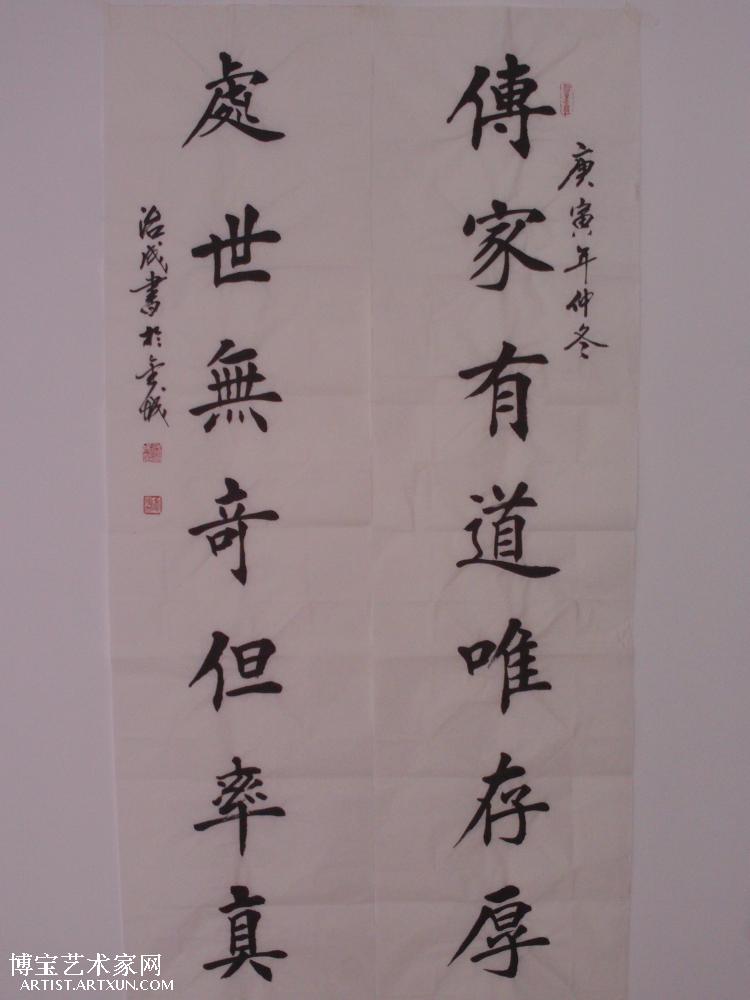 庚寅年仲冬
傳家有道唯存厚
處世無奇但率真
治成書於金城
博宝艺术家网
ARTIST.ARTXUN.COM